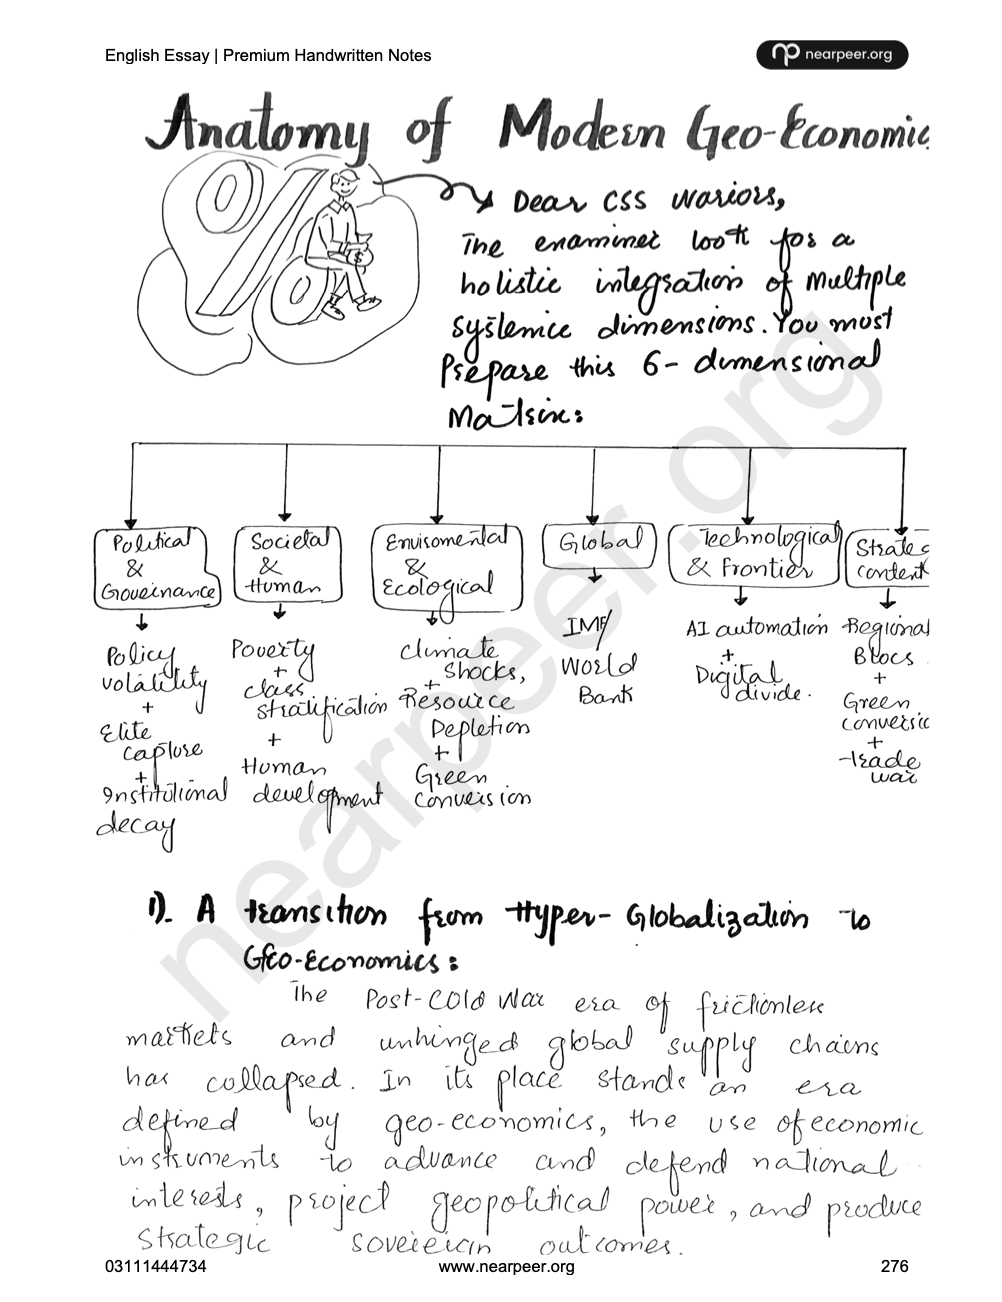 English Essay | Premium Handwritten Notes
nearpeer.org
Anatomy of Modern Geo-Economic
Dear CSS wariors,
The examiner look for a
holistic integration of multiple
systemice dimensions. You must
Prepare this 6- dimensional
Matrix:
Political
&
Governance
Policy
volatility
+
Elite
capture
+
Institutional
decay
Societal
&
Human
Poverty
+
class
stratification
+
Human
development
Envisomental
&
Ecological
climate
shocks,
+
Resource
Depletion
+
Green
conversion
Global
IMF/
World
Bank
Technological
& Frontier
AI automation
+
Digital
divide.
Strateg
content
Regional
Blocs
+
Green
conversio
+
trade
war
1). A transition from Hyper-Globalization to
Geo-Economics:
The Post-Cold War era of frictionless
markets and unhinged global supply chains
has collapsed. In its place stands an era
defined by geo-economics, the use of economic
instruments to advance and defend national
interests, project geopolitical power, and produce
strategic sovereign outcomes.
nearpeer.org
03111444734
www.nearpeer.org
276